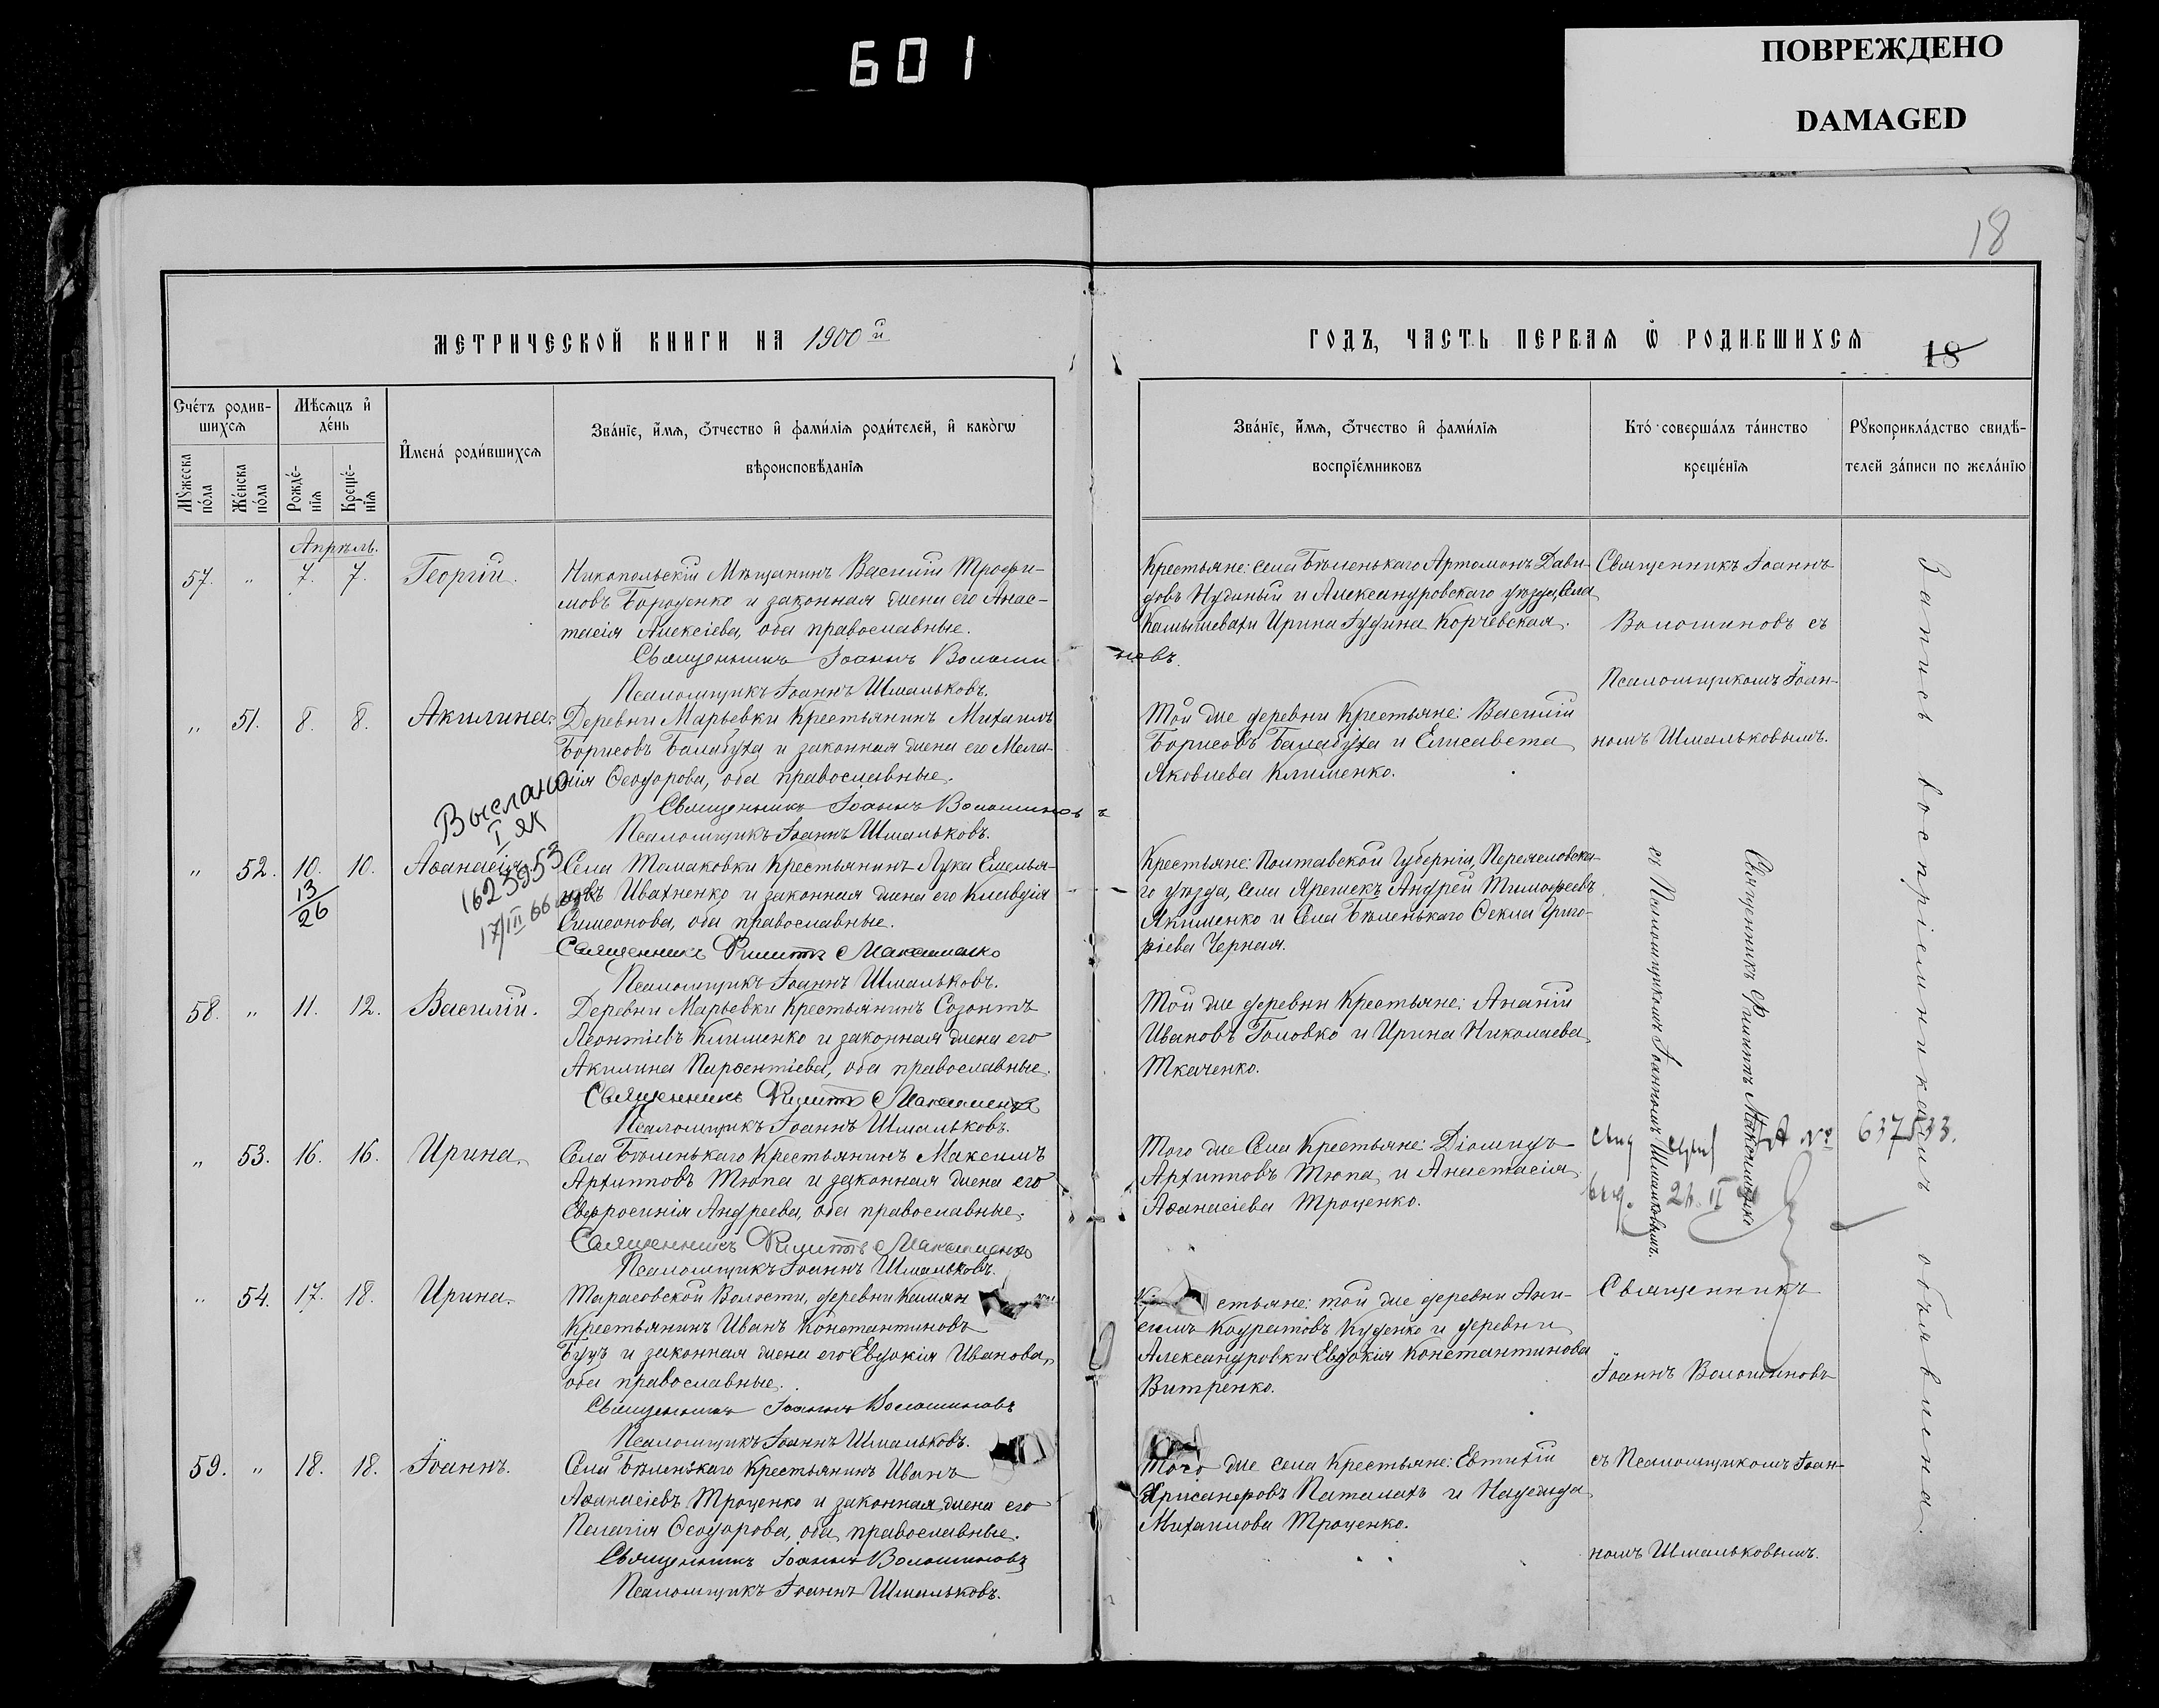 601
ПОВРЕЖДЕНО
DAMAGED
18
МЕТРИЧЕСКОЙ КНИГИ НА 1900й
ГОДЪ, ЧАСТЬ ПЕРВАЯ Ѡ РОДИВШИХСЯ
18
Счетъ родив-
шихся
Мѣсяцъ и
день
Имена родившихся
Званіе, имя, отчество и фамилія родителей, и какогѡ
вѣроисповѣданія
Мужеска
пола
Женска
пола
Рожде-
нія
Креще-
нія
Званіе, имя, отчество и фамилія
воспріемниковъ
Кто совершалъ таинство
крещенія
Рукоприкладство свидѣ-
телей записи по желанію
Апрѣль.
57. " 7. 7. Георгій.
Никопольскій Мѣщанинъ Василій Трофи-
мовъ Бороденко и законная жена его Анас-
тасія Алексіева, оба православные.
Священникъ Іоаннъ Волоши новъ.
Псаломщикъ Іоаннъ Шмальковъ.
Крестьяне: села Бѣленькаго Артомонъ Дави-
довъ Нудный и Александровскаго уѣзда, Села
Камышевахи Ирина Корчевская.
Священникъ Іоаннъ
Волошиновъ съ
Псаломщикомъ Іоан-
номъ Шмальковымъ.
" 51. 8. 8. Акилина.
Деревни Марьевки Крестьянинъ Михаилъ
Борисовъ Балабуха и законная жена его Мела-
нія Ѳеодорова, оба православные.
Священникъ Іоаннъ Волошиновъ
Псаломщикъ Іоаннъ Шмальковъ.
Той же деревни Крестьяне: Василій
Борисовъ Балабуха и Елисавета
Яковлева Клименко.
Выслано
I ЯК
162 5953
17/III 66
" 52. 10. 10. Аѳанасія.
13
26
Села Томаковки Крестьянинъ Лука Емелья-
новъ Ивахненко и законная жена его Клавдія
Симеонова, оба православные.
Священникъ Филиппъ Максименко
Псаломщикъ Іоаннъ Шмальковъ.
Крестьяне: Полтавской Губерніи, Переяславска-
го уѣзда, села Ярешекъ Андрей Тимофеевъ
Якименко и Села Бѣленькаго Ѳекла Григо-
ріева Черная.
Священникъ Филиппъ Максименко
съ Псаломщикомъ Іоанномъ Шмальковымъ.
58. " 11. 12. Василій.
Деревни Марьевки Крестьянинъ Созонтъ
Леонтіевъ Клименко и законная жена его
Акилина Парѳентіева, оба православные.
Священникъ Филиппъ Максименко
Псаломщикъ Іоаннъ Шмальковъ.
Той же деревни Крестьяне: Ананій
Ивановъ Головко и Ирина Николаева
Ткаченко.
" 53. 16. 16. Ирина.
Села Бѣленькаго Крестьянинъ Максимъ
Архипповъ Тюпа и законная жена его
Евфросинія Андреева, оба православные.
Священникъ Филиппъ Максименко
Псаломщикъ Іоаннъ Шмальковъ.
Того же Села Крестьяне: Діомидъ
Архипповъ Тюпа и Анастасія
Аѳанасіева Троценко.
№ 637833.
" 54. 17. 18. Ирина.
Тарасовской Волости, деревни Камян
Крестьянинъ Иванъ Константиновъ
Буцъ и законная жена его Евдокія Иванова,
оба православные.
Священникъ Іоаннъ Волошиновъ
Псаломщикъ Іоаннъ Шмальковъ.
стьяне: той же деревни Ани-
симъ Кодратовъ Куценко и деревни
Александровки Евдокія Константинова
Витренко.
Священникъ
Іоаннъ Волошиновъ
съ Псаломщикомъ Іоан-
номъ Шмальковымъ.
59. " 18. 18. Іоаннъ.
Села Бѣленькаго Крестьянинъ Иванъ
Аѳанасіевъ Троценко и законная жена его
Пелагія Ѳеодорова, оба православные.
Священникъ Іоаннъ Волошиновъ
Псаломщикъ Іоаннъ Шмальковъ.
Того же села Крестьяне: Евтихій
Хрисанфовъ Паталахъ и Надежда
Михаилова Троценко.
Запись воспріемникамъ объявлена.